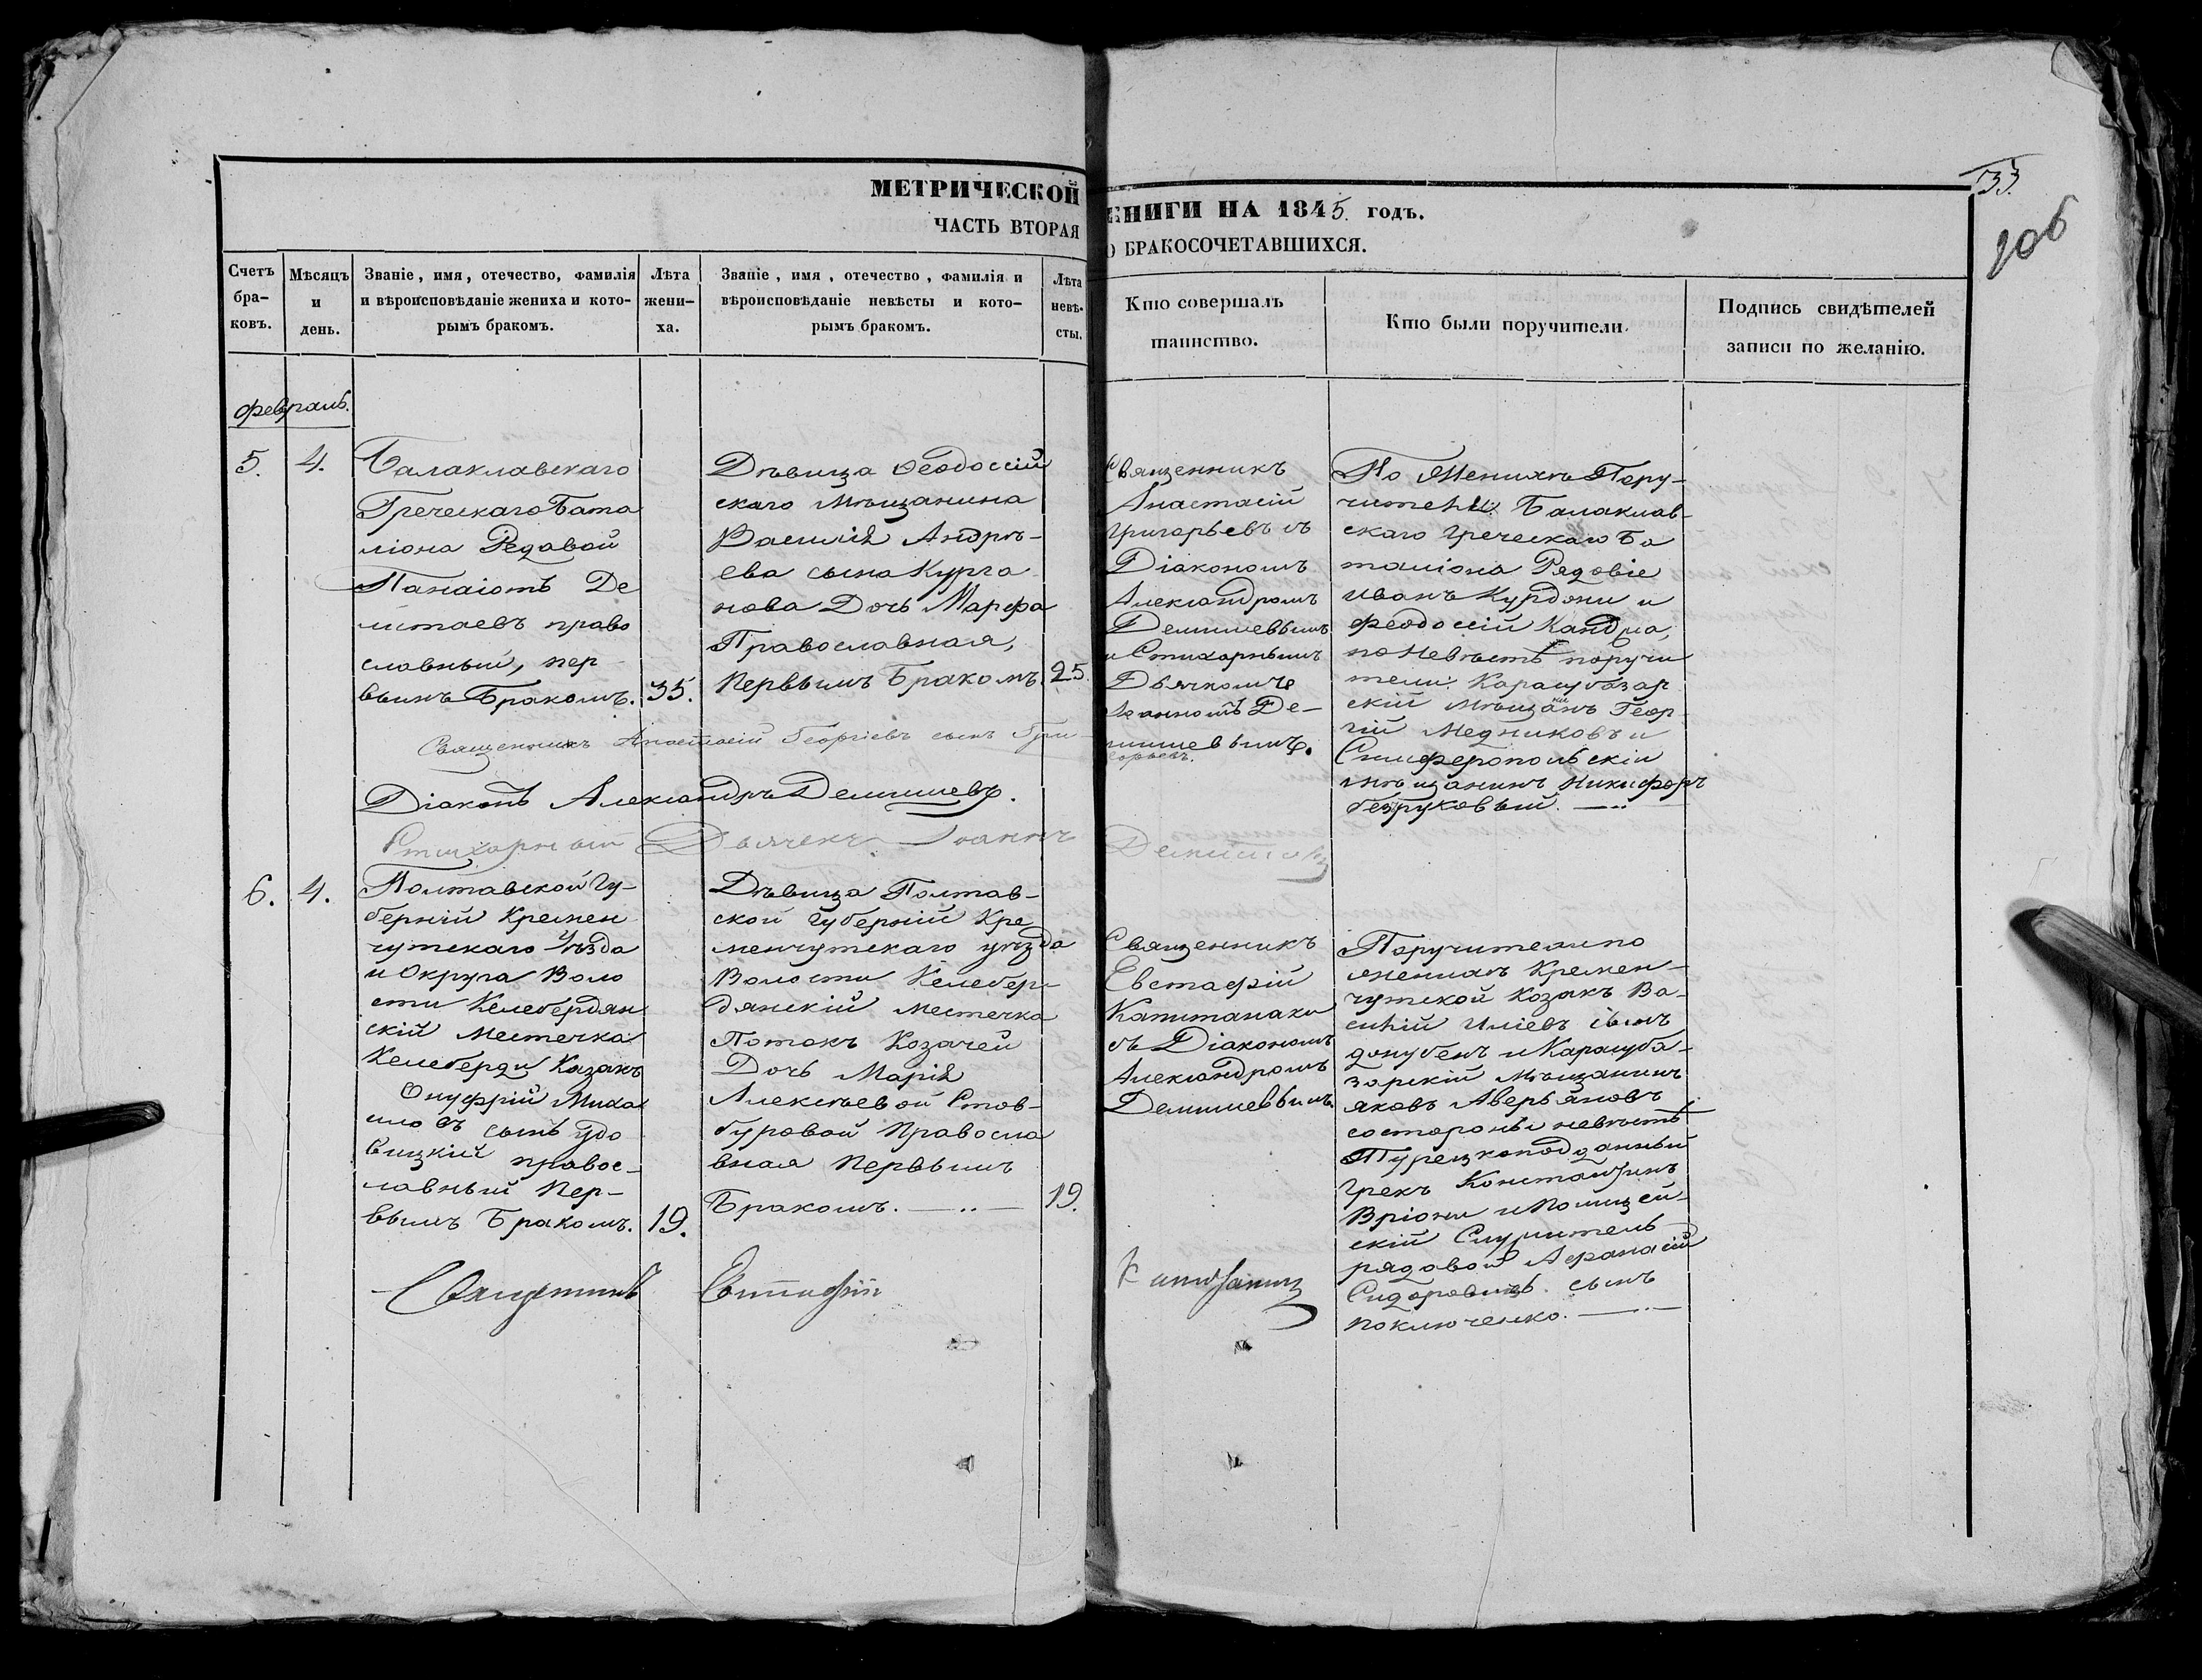 МЕТРИЧЕСКОЙ
ЧАСТЬ ВТОРАЯ
Счетъ бра-ковъ.
Мѣсяцъ и день.
Званіе, имя, отечество, фамилія и вѣроисповѣданіе жениха и кото-рымъ бракомъ.
Лѣта жени-ха.
Званіе, имя, отечество, фамилія и вѣроисповѣданіе невѣсты и кото-рымъ бракомъ.
Лѣта невѣ-сты.
КНИГИ НА 1845. годъ.
О БРАКОСОЧЕТАВШИХСЯ.
Кто совершалъ таинство.
Кто были поручители.
Подпись свидѣтелей записи по желанію.
133.
106
февраль.
5.
4.
Балаклавскаго
Греческаго Бата
ліона Редавой
Панаіотъ Де
листаевъ право
славный, пер
вымъ Бракомъ.
35.
Дѣвица Ѳеодоссій
скаго мѣщанина
Василія Андрѣ-
ева сына Курга
нова Дочь Марфа
Православная,
Первымъ Бракомъ.
25.
Священникъ
Анастасій
Григорьевъ съ
Діакономъ
Александромъ
Демишевымъ
и Стихарнымъ
Дьячкомъ
Іоанномъ Де-
мишевымъ.
По Женихѣ Пору-
чители: Балаклав-
скаго Греческаго Ба
таліона Рядовіе
Иванъ Курдони и
Феодосій Кандиа,
по Невѣстѣ поручи
тели: Карасубазар
скій Мѣщанинъ Геор
гій Медниковъ и
Симферопольскій
мѣщанинъ Никифоръ
безруковый.
Священникъ Анастасій Георгіевъ сынъ Гри-
горьевъ.
Діаконъ Александръ Демишевъ.
Стихарный Дьячекъ Іоаннъ Демишевъ
6.
4.
Полтавской Гу-
берній Кремен
чутскаго Уѣзда
и Округа Воло
сти Келебердян
скій Местечка
Келеберди Казакъ
Онуфрій Миха
иловъ сынъ удо
вицкій правос-
лавный Пер-
вымъ Бракомъ.
19.
Дѣвица Полтав-
ской Губерній Кре
менчутскаго уѣзда
Волости Келебер-
дянскій местечка
Потокъ Козачей
Дочь Марія
Алексѣевой Стов-
буровой Правосла
вная Первымъ
Бракомъ.
19.
Священникъ
Евстафій
Капитанаки
съ Діакономъ
Александромъ
Демишевымъ
Поручители по
женихѣ Кремен-
чутской Козакъ Ва-
силій Иліевъ сынъ
донубенъ и Карасуба-
зарскій мѣщанинъ
яковъ Аверьяновъ
со стороны невѣстѣ
Турецкоподданный
Грекъ Константинъ
Вріони и Полицей-
скій Служитель
рядовой Афанасій
Сидоровичъ сынъ
поключенко.
Священникъ Евстафій Капитанаки